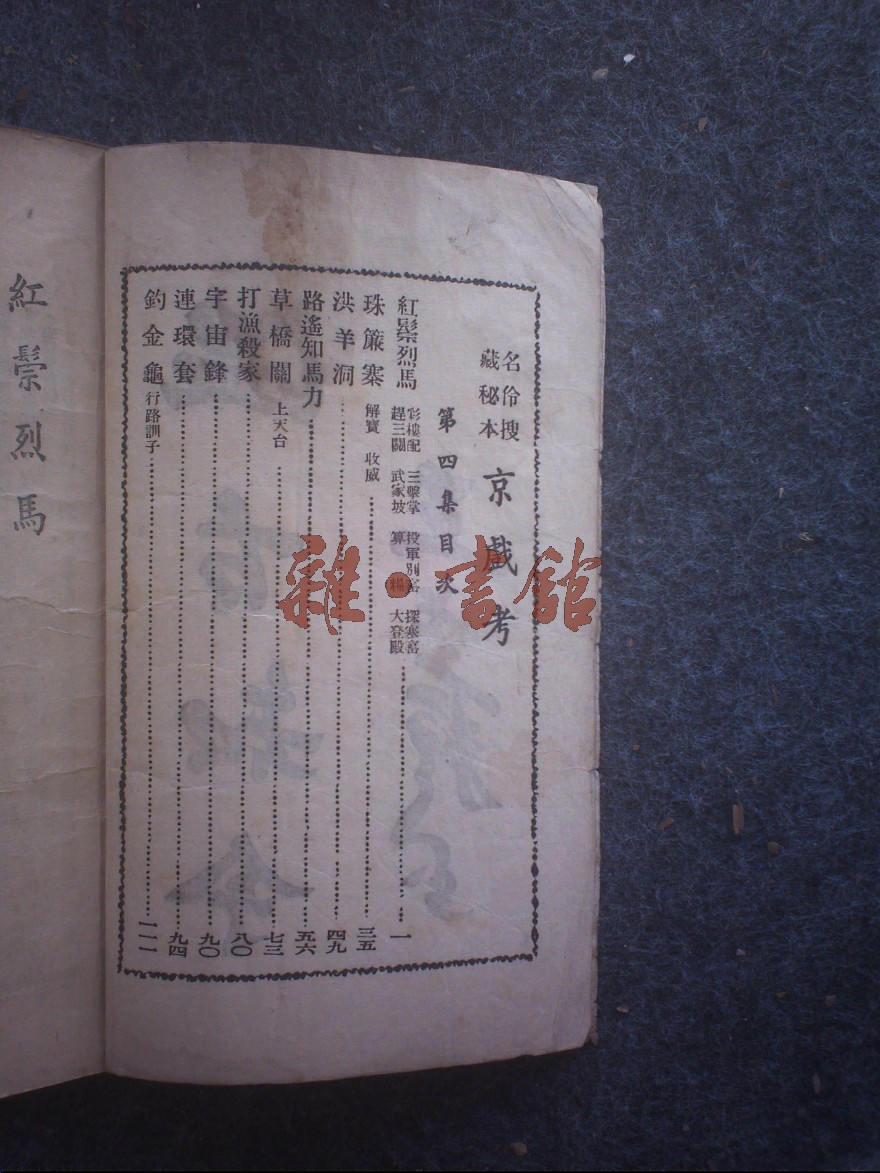 名伶搜
藏秘本
京戲考
第四集目次
紅鬃烈馬 彩樓配 三擊掌 投軍別窰 探寒窰
趕三關 武家坡 算糧 大登殿 一
珠簾寨 解寶 收威 三五
洪羊洞 四九
路遙知馬力 五六
草橋關 上天台 七三
打漁殺家 八〇
宇宙鋒 九〇
連環套 九四
釣金龜 行路訓子 一一一
紅鬃烈馬
雜·書館